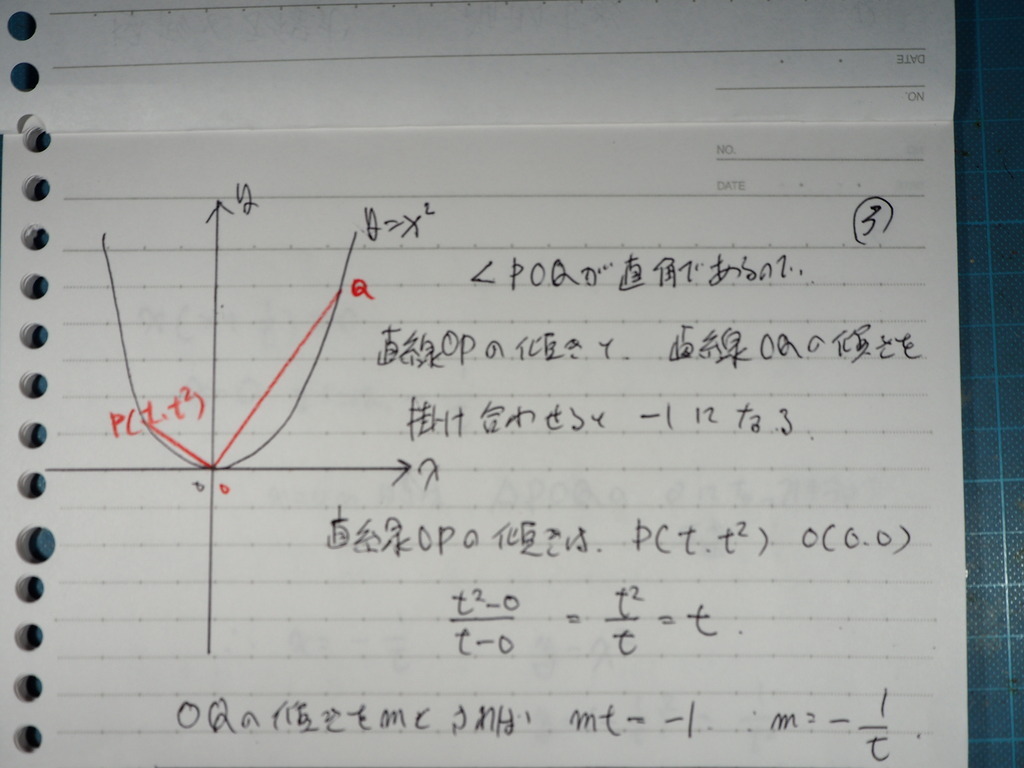 DATE
NO.
NO.
DATE
③
y
y=x²
∠POQが直角であるので、
Q
直線OPの傾きと、直線OQの傾きを
P(t, t²)
掛け合わせると -1になる。
x
0 0
直線OPの傾きは、P(t, t²) O(0, 0)
t²-0/t-0 = t²/t = t.
OQの傾きをmとすれば mt = -1 ∴ m = -1/t.